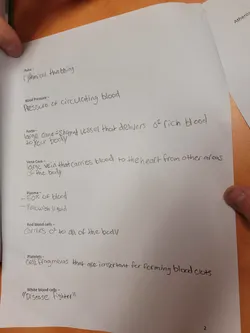 Pulse -
rythmic throbbing
Blood Pressure -
Pressure of circulating blood
Aorta -
large blood vessel that delivers O² rich blood
to your body
Vena Cava -
large vein that carries blood to the heart from other areas
of the body
Plasma -
- 55% of blood
Red blood cells -
carries O² to all of the body
Platelets -
cell fragments that are important for forming blood clots
White blood cells -
"Disease fighters"